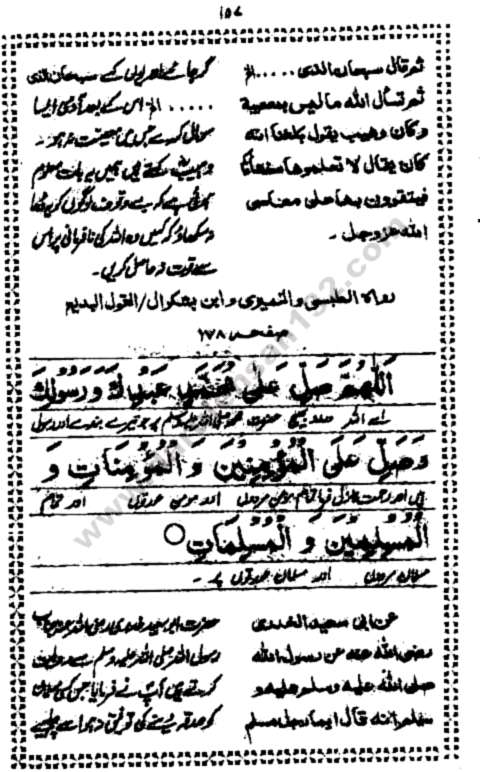 ۱۵۷
ثم قال سبحان الذی ..... الخ
ثم تسأل الله ما لیس بمعصیة
وکان وهیب یقول بلغنا انه
کان یقال لا تعلموها سفهائکم
فیتقوون بها علی معاصی
الله عزوجل ۔
کے سبحان الذی
..... الخ اس کے بعد آدمی ایسا
سوال کرے جس میں معصیت نہ ہو ۔
وہیب کہتے ہیں ہمیں یہ بات معلوم
ہوئی ہے کہ بے وقوف لوگوں کو یہ دعا
نہ سکھاؤ کہ کہیں وہ اللہ کی نافرمانی پر اس
سے قوت نہ حاصل کریں ۔
رواه الطبسی والنمیری وابن بشکوال / القول البدیع
صفحه ۱۷۸
اَللّٰهُمَّ صَلِّ عَلٰی مُحَمَّدٍ عَبْدِكَ وَرَسُوْلِكَ
اے اللہ حضرت محمد صلی اللہ علیہ وسلم پر جو تیرے بندے اور رسول
وَصَلِّ عَلَی الْمُؤْمِنِیْنَ وَ الْمُؤْمِنَاتِ وَ
ہیں اور رحمت نازل فرما تمام مومن مردوں اور مومن عورتوں اور تمام
الْمُسْلِمِیْنَ وَ الْمُسْلِمَاتِ
مسلمان مردوں اور مسلمان عورتوں پر ۔
عن ابی سعید الخدری
رضی الله عنه عن رسول الله
صلی الله علیه وسلم علیه و
سلم انه قال ایما رجل مسلم
حضرت ابو سعید خدری رضی اللہ عنہ
رسول اللہ صلی اللہ علیہ وسلم سے روایت
کرتے ہیں آپ نے فرمایا جس کسی مسلمان
کو صدقہ دینے کی توفیق نہ ہو اسے چاہیے